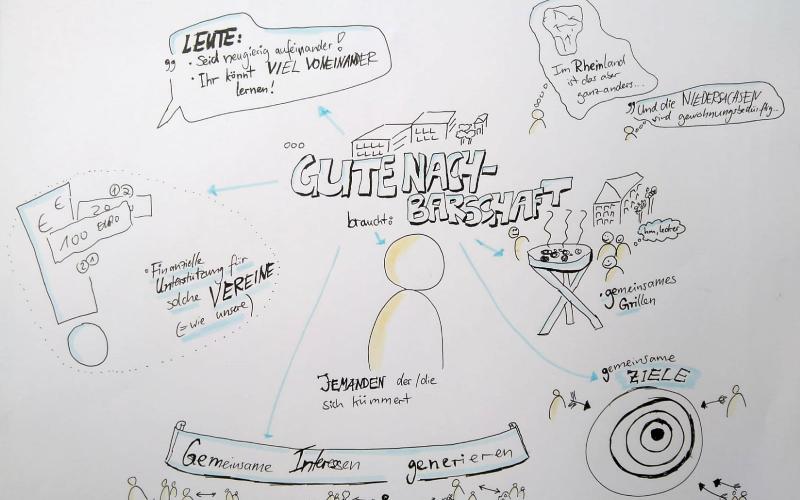 LEUTE:
" • Seid neugierig aufeinander!
• Ihr könnt VIEL VONEINANDER
lernen!
Im Rheinland
ist das aber
ganz anders...
"Und die NIEDERSACHSEN
sind gewöhnungsbedürftig...
GUTE NACH-
BARSCHAFT
braucht:
€ €
20
100 EURO
• Finanzielle
Unterstützung für
solche VEREINE
(= wie unsere)
hm, lecker
• gemeinsames
Grillen
JEMANDEN der/die
sich kümmert
gemeinsame
ZIELE
Gemeinsame Interessen generieren